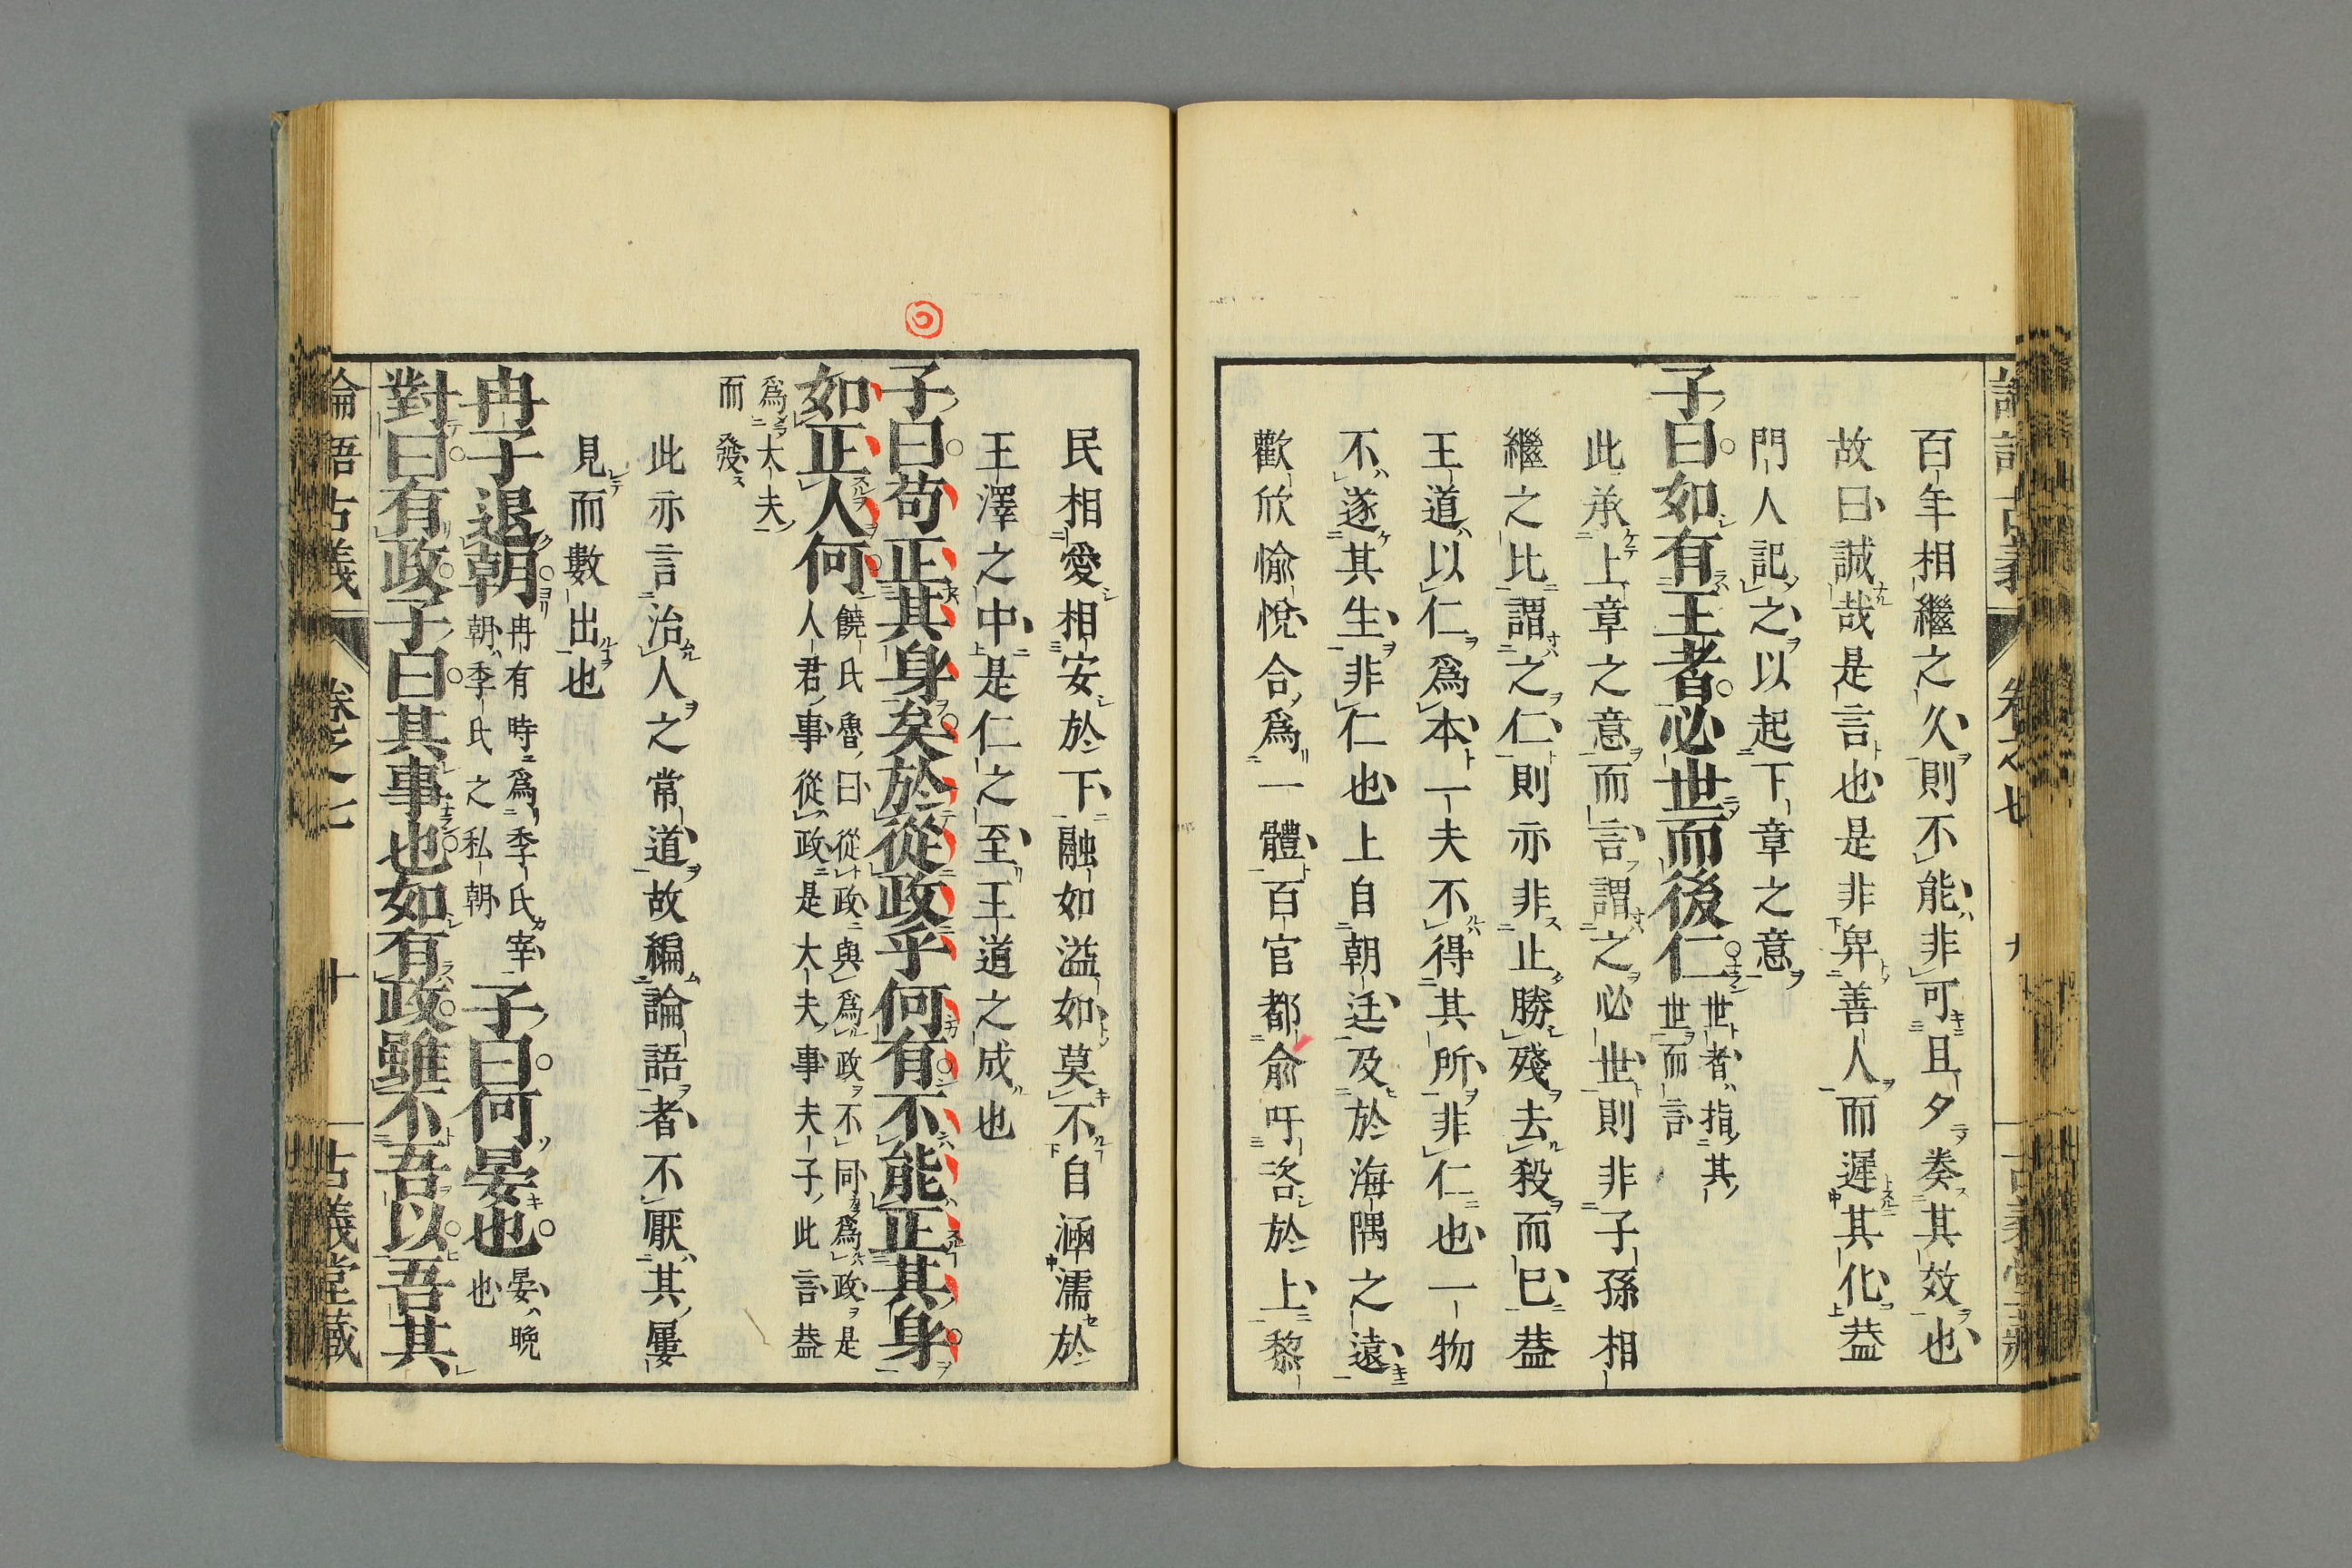 百年相繼之久則不能非可且夕奏其效也
故曰誠哉是言也是非卑善人而遲其化葢
門人記之以起下章之意
子曰如有王者必世而後仁
世者指其
世而言
此承上章之意而言謂之必世則非子孫相
繼之比謂之仁則亦非止勝殘去殺而已葢
王道以仁爲本一夫不得其所非仁也一物
不遂其生非仁也上自朝廷及於海隅之遠
歡欣愉悅合爲一體百官都俞吁咨於上黎
民相愛相安於下融如溢如莫不自涵濡於
王澤之中是仁之至王道之成也
子曰苟正其身矣於從政乎何有不能正其身
如正人何
饒氏魯曰從政與爲政不同爲政是
人君事從政是大夫事夫子此言葢
爲大夫
而發
此亦言治人之常道故編論語者不厭其屢
見而數出也
冉子退朝
冉有時爲季氏宰
朝季氏之私朝
子曰何晏也
晏晚
也
對曰有政子曰其事也如有政雖不吾以吾其
論語古義 卷之七 十 古義堂藏